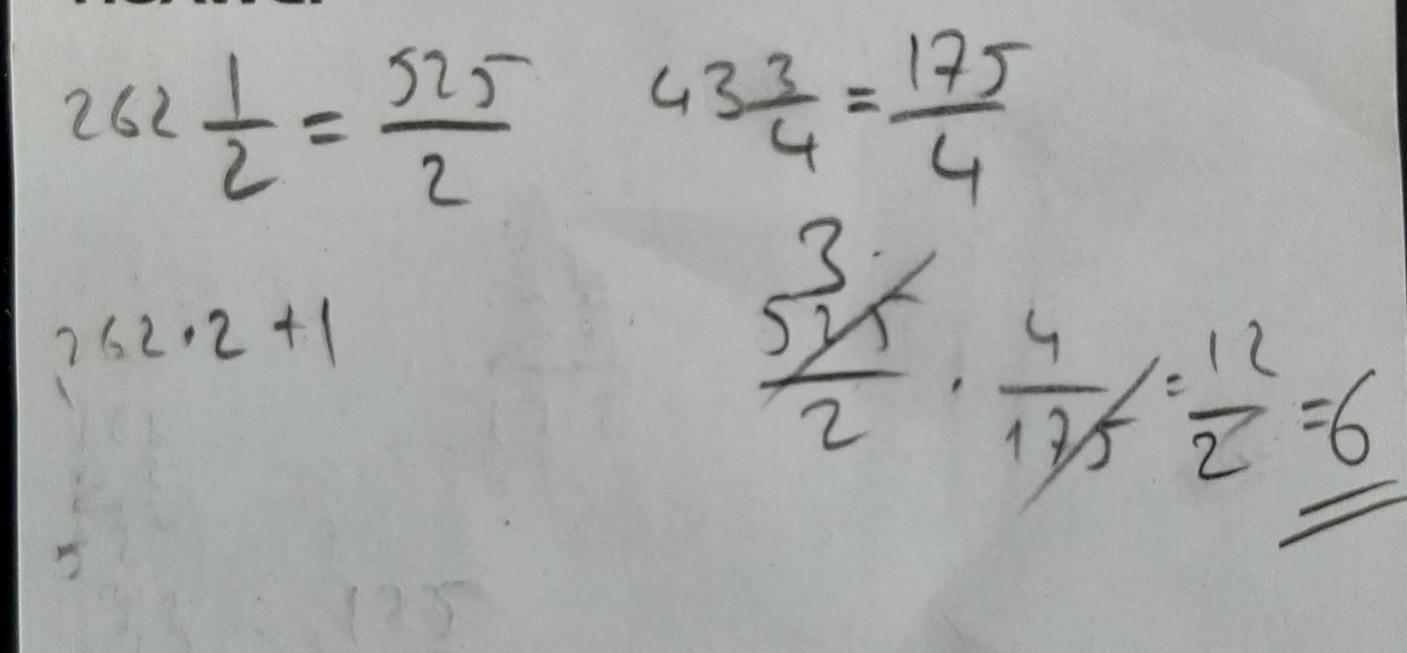 262 1/2 = 525/2
43 3/4 = 175/4
262·2+1
3
525/2 · 4/175 = 12/2 = 6
175